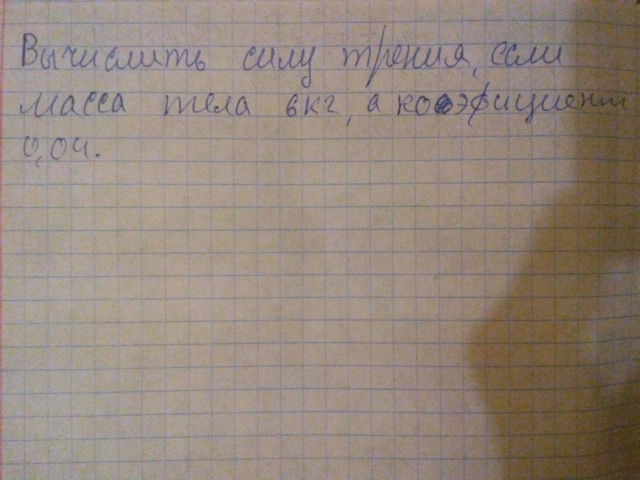 Вычислить силу трения, если
масса тела 6кг, а коэфициент
0,04.